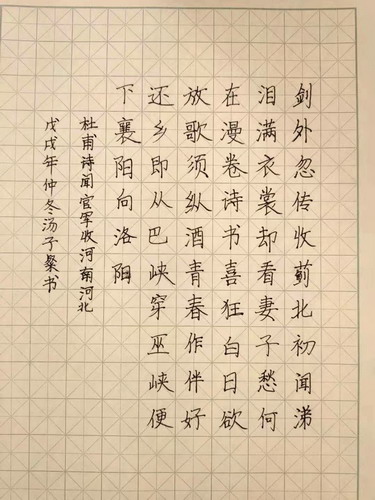 剑外忽传收蓟北初闻涕
泪满衣裳却看妻子愁何
在漫卷诗书喜狂白日欲
放歌须纵酒青春作伴好
还乡即从巴峡穿巫峡便
下襄阳向洛阳
杜甫诗闻官军收河南河北
戊戌年仲冬汤子粲书